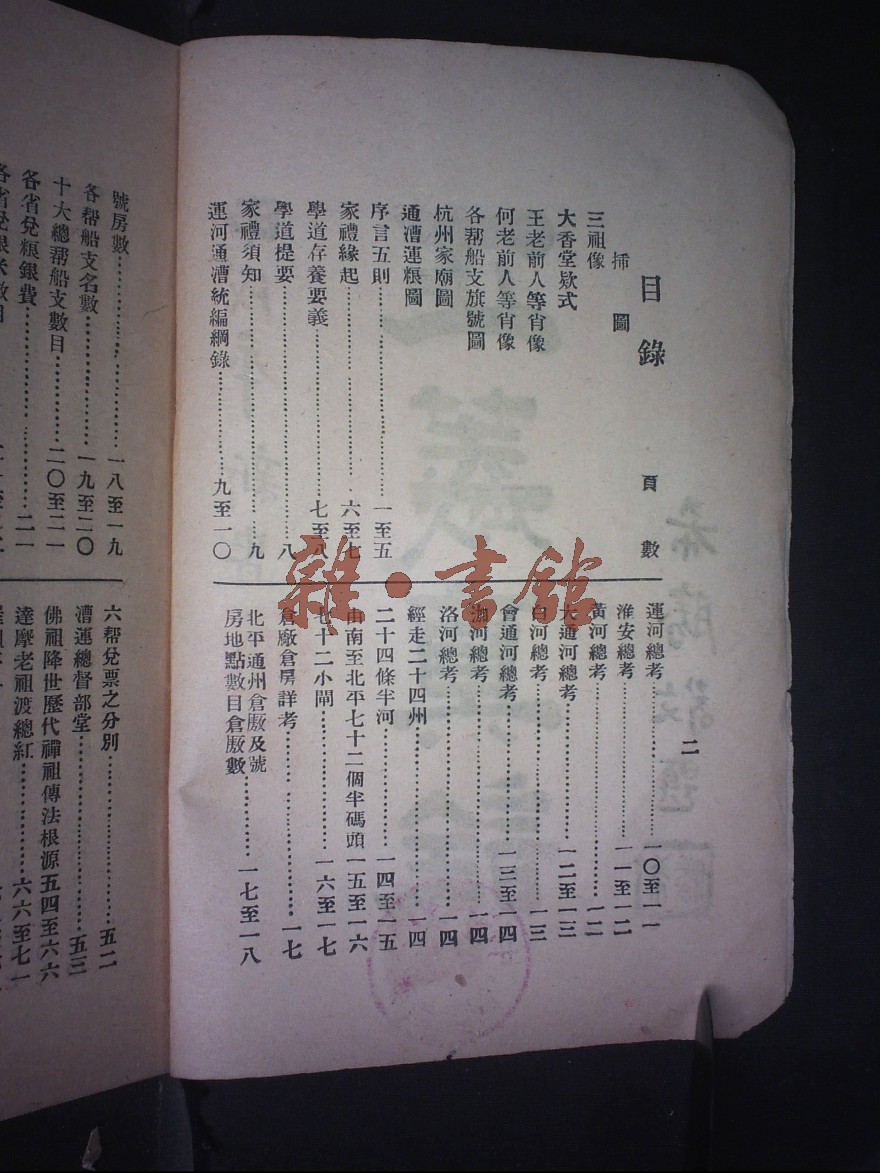 目錄 頁數
插圖
三祖像
大香堂欵式
王老前人等肖像
何老前人等肖像
各帮船支旗號圖
杭州家廟圖
通漕運粮圖
序言五則 一至五
家禮緣起 六至七
學道存養要義 七至八
學道提要 八
家禮須知 九
運河通漕統編綱錄 九至一〇
運河總考 一〇至一一
淮安總考 一一至一二
黃河總考 一二
大通河總考 一二至一三
白河總考 一三
會通河總考 一三至一四
洳河總考 一四
洛河總考 一四
經走二十四州 一四
二十四條半河 一四至一五
由南至北平七十二個半碼頭 一五至一六
七十二小閘 一六至一七
倉廠倉房詳考 一七
北平通州倉厫及號
房地點數目倉厫數 一七至一八
二
號房數 一八至一九
各帮船支名數 一九至二〇
十大總帮船支數目 二〇至二一
各省兌粮銀費 二一
六帮兌票之分別 五二
漕運總督部堂 五三
佛祖降世歷代禪祖傳法根源 五四至六六
達摩老祖渡總紅 六六至七一
雜·書館